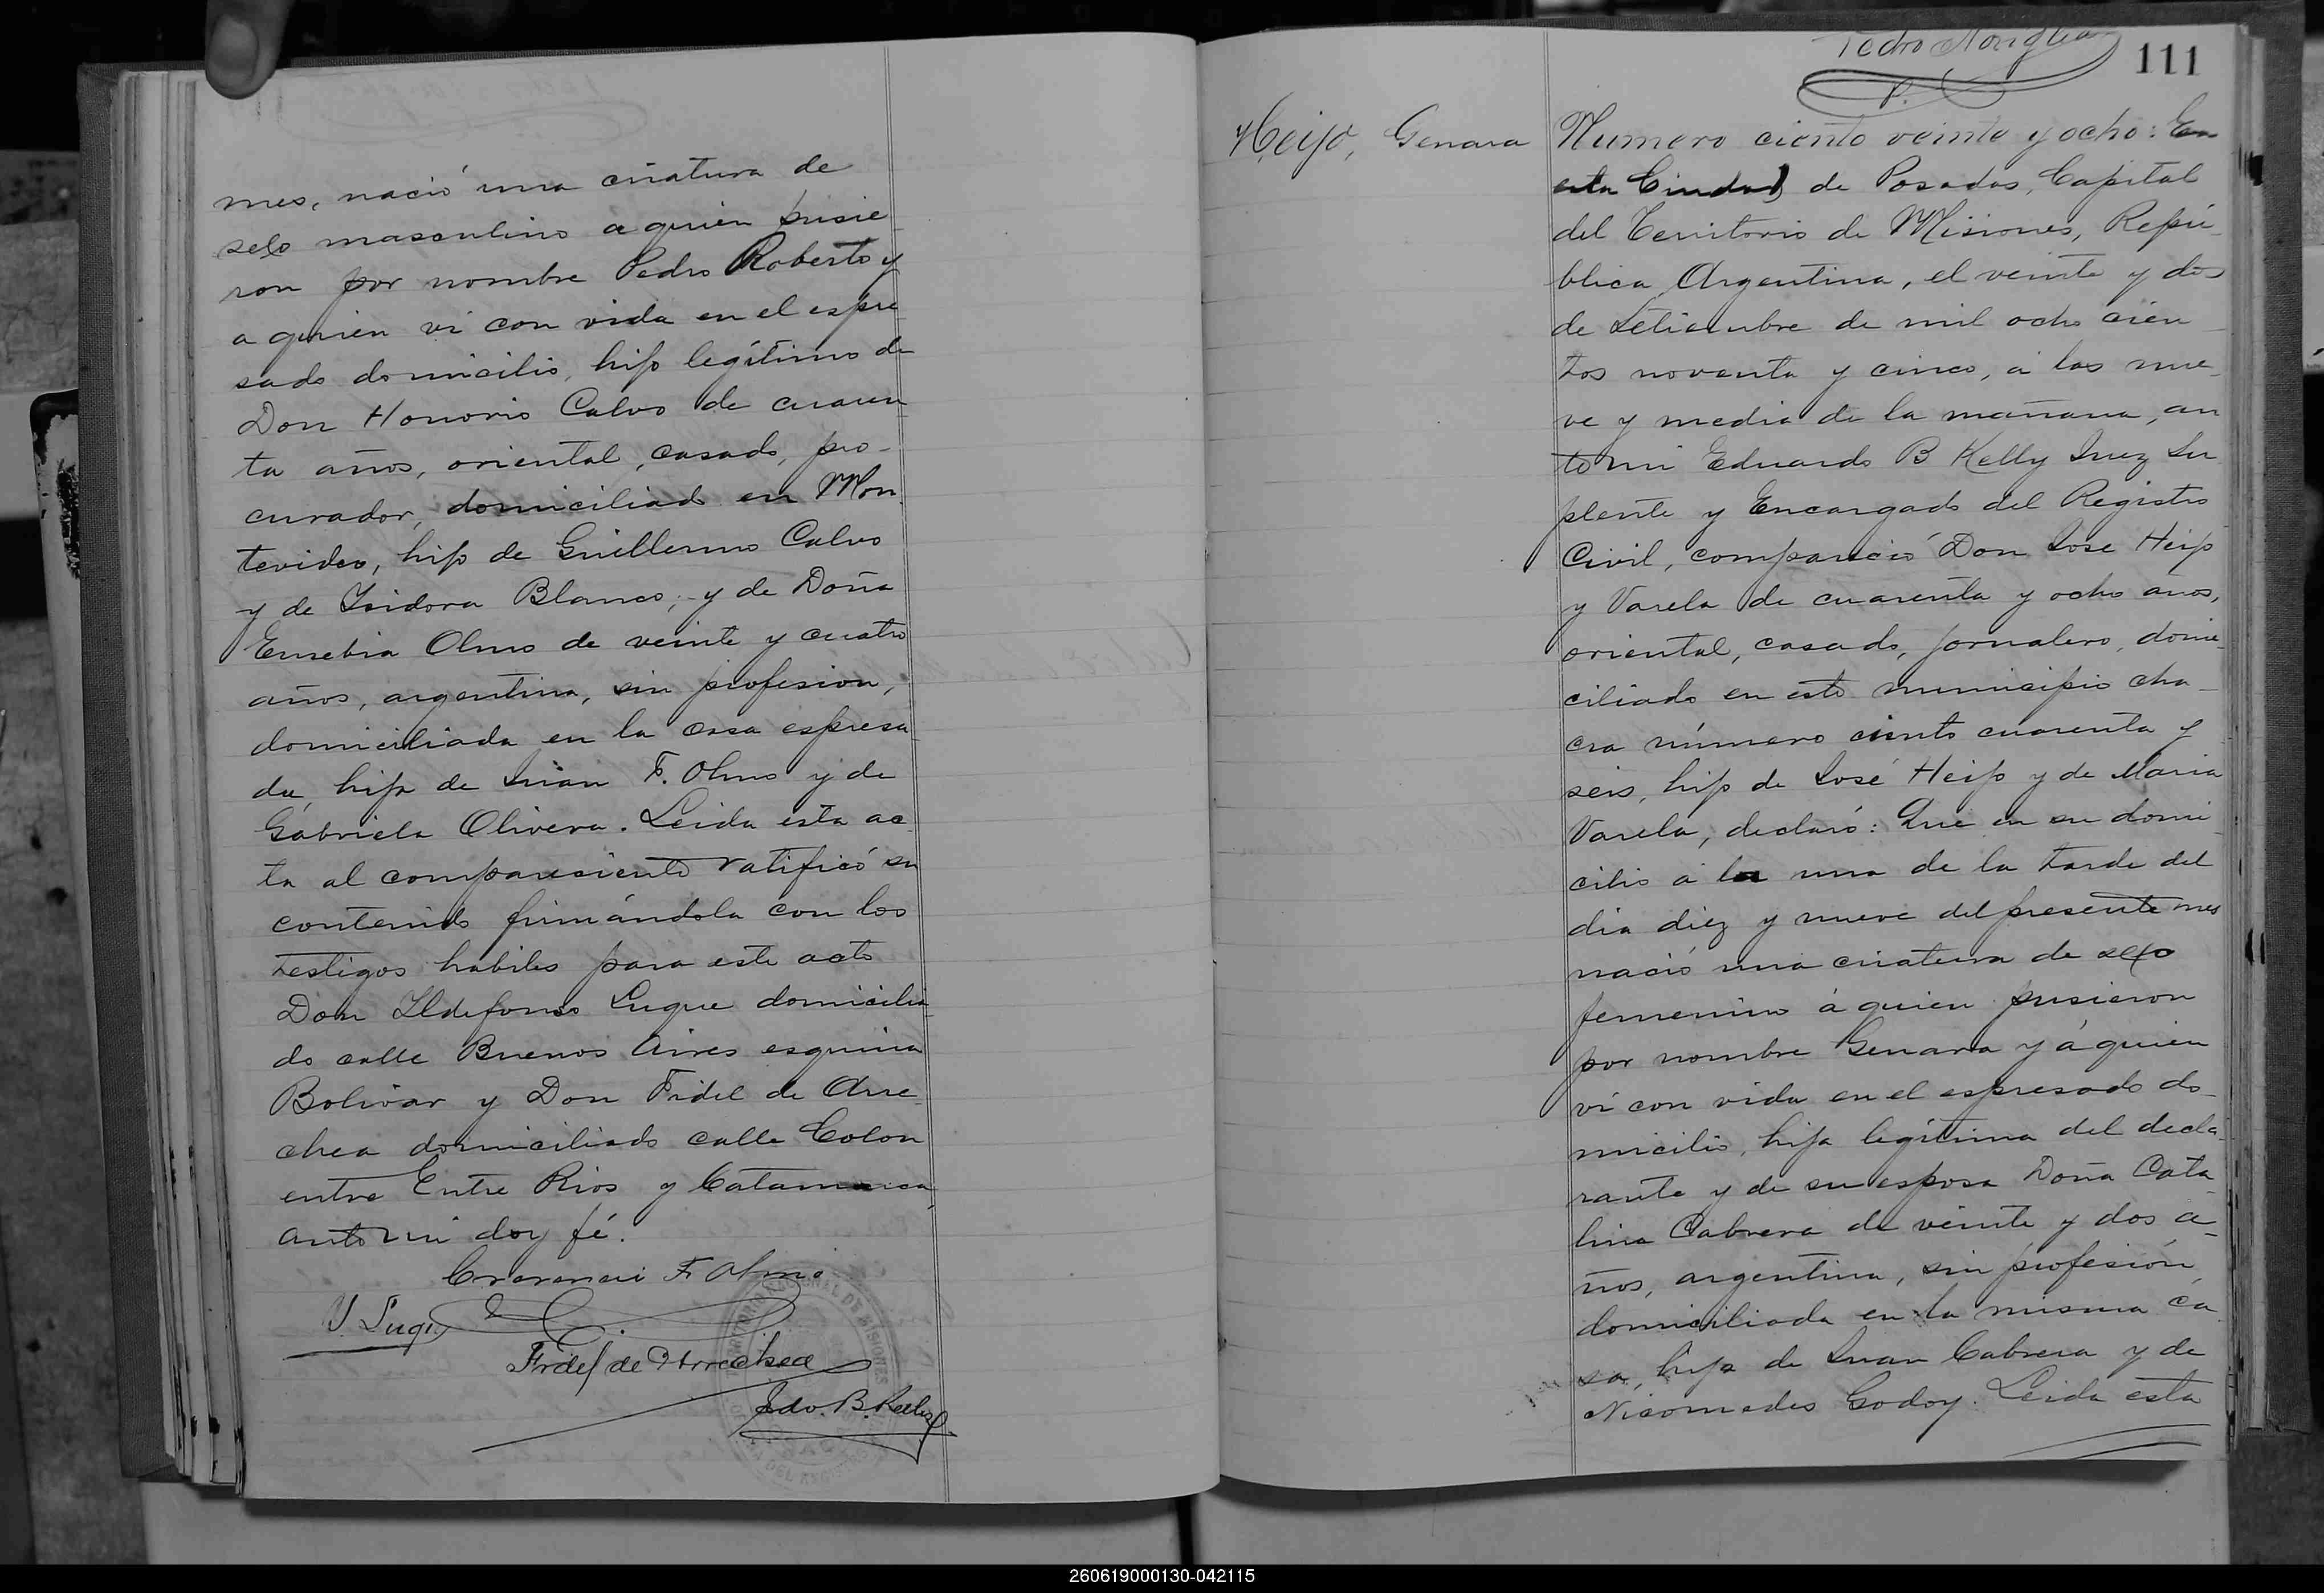 mes, nació una criatura de
sexo masculino a quien pusie
ron por nombre Pedro Roberto y
a quien vi con vida en el espre
sado domicilio, hijo legítimo de
Don Honorio Calvo de cuaren
ta años, oriental, casado, pro-
curador, domiciliad en Mon
tevideo, hijo de Guillermo Calvo
y de Isidora Blanco; y de Doña
Eusebia Olmo de veinte y cuatro
años, argentina, sin profesion,
domiciliada en la casa espresa
da, hija de Juan F. Olmo y de
Gabriela Olivera. Leida esta ac
ta al compareciente ratificó su
contenido firmándola con los
testigos habiles para este acto
Don Ildefonso Luque domicilia
do calle Buenos Aires esquina
Bolivar y Don Fidel de Arre
chea domiciliado calle Colon
entre Entre Rios y Catamarca,
ante mi doy fé.
F. Olmo
Y. Luque
Fidel de Arrechea
Edo. B. Kelly
111
Heijo, Genara
Numero ciento veinte y ocho: En
esta Ciudad de Posadas, Capital
del Territorio de Misiones, Repú
blica Argentina, el veinte y dos
de Setiembre de mil ocho cien
tos noventa y cinco, á las nue
ve y media de la mañana, an
te mi Eduardo B Kelly Juez Su
plente y Encargado del Registro
Civil, compareció Don José Heijo
y Varela de cuarenta y ocho años,
oriental, casado, jornalero, domi
ciliado en este municipio cha
cra número ciento cuarenta y
seis, hijo de José Heijo y de Maria
Varela, declaró: Que en su domi
cilio á la una de la tarde del
dia diez y nueve del presente mes
nació una criatura de sexo
femenino á quien pusieron
por nombre Genara y á quien
vi con vida en el espresado do
micilio, hija legítima del decla
rante y de su esposa Doña Cata
lina Cabrera de veinte y dos a-
ños, argentina, sin profesión
domiciliada en la misma ca
sa, hija de Juan Cabrera y de
Nicomedes Godoy. Leida esta
260619000130-042115